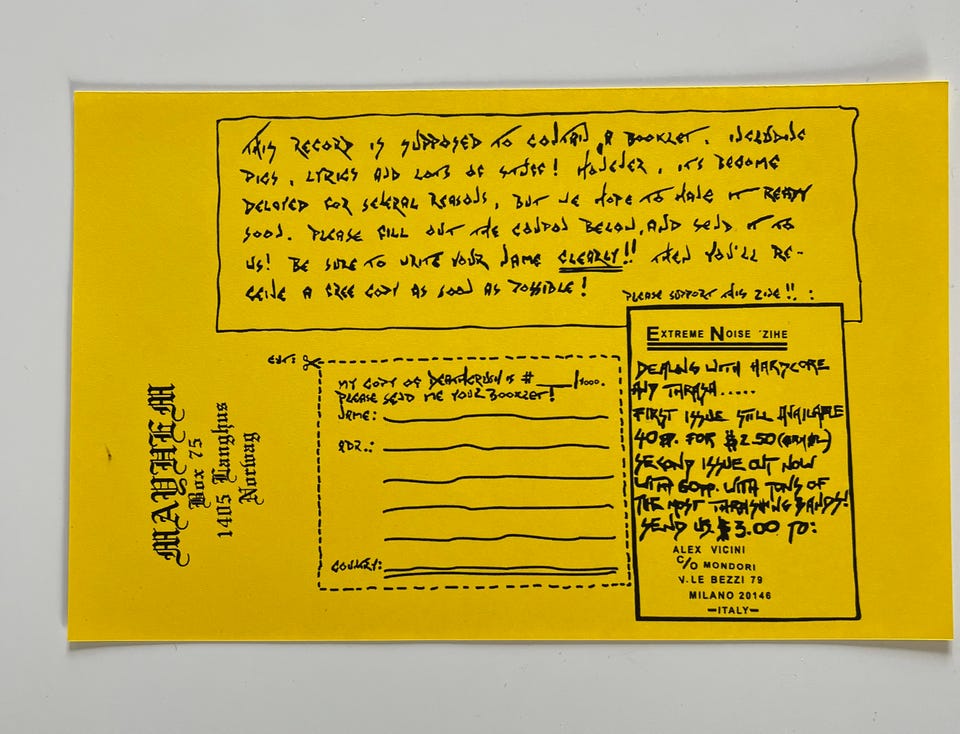 THIS RECORD IS SUPPOSED TO CONTAIN A BOOKLET, INCLUDING
PICS, LYRICS AND LOTS OF STUFF! HOWEVER, IT'S BECOME
DELAYED FOR SEVERAL REASONS, BUT WE HOPE TO HAVE IT READY
SOON. PLEASE FILL OUT THE COUPON BELOW, AND SEND IT TO
US! BE SURE TO WRITE YOUR NAME CLEARLY!! THEN YOU'LL RE-
CEIVE A FREE COPY AS SOON AS POSSIBLE!
PLEASE SUPPORT THIS ZINE!!, :
CUT:
MY COPY OF DEATHCRUSH IS # ____/1000.
PLEASE SEND ME YOUR BOOKLET!
NAME:
ADR.:
COUNTRY:
MAYHEM
Box 75
1405 Langhus
Norway
EXTREME NOISE 'ZIHE
DEALING WITH HARDCORE
AND THRASH.....
FIRST ISSUE STILL AVAILABLE
40 PP. FOR $2.50
SECOND ISSUE OUT NOW
WITH 60PP. WITH TONS OF
THE MOST THRASHING BANDS!
SEND US $3.00 TO:
ALEX VICINI
C/O MONDORI
V.LE BEZZI 79
MILANO 20146
-ITALY-